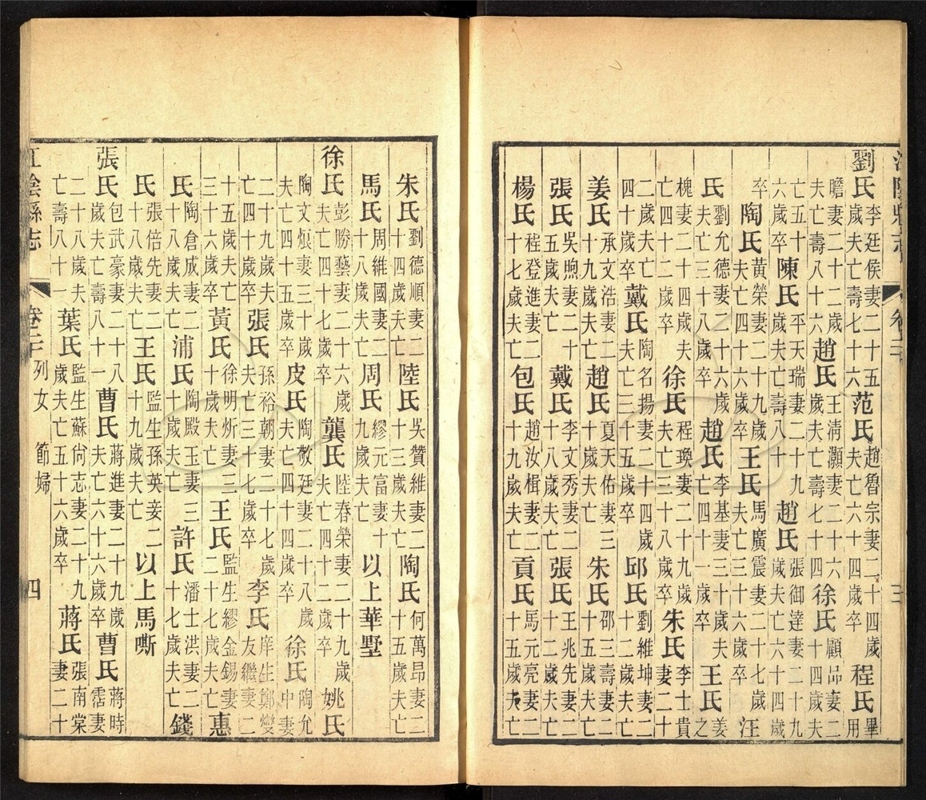 劉氏李廷侯妻二十五歲夫亡壽七十六范氏趙魯宗妻二十四歲夫亡六十四歲卒程氏畢用
瞻妻二十二歲夫亡壽八十六趙氏王淸灝妻二十六歲夫亡壽七十四徐氏顧品妻二十四歲夫
亡五十六歲卒陳氏平天瑞妻二十九歲夫亡壽八十趙氏張御達妻二十九歲夫亡六十四歲
卒陶氏黃榮妻二十九十六歲卒王氏馬廣震妻二十七歲夫亡三十六歲卒汪
氏劉允德妻二十六歲夫亡三十八歲卒趙氏李基妻三十歲夫亡四十一歲卒王氏姜之
槐妻二十四歲夫亡四十二歲卒徐氏程瑍妻二十九歲夫亡三十八歲卒朱氏李士貴妻二十
四歲夫亡四十歲卒戴氏陶名揚妻二十四歲夫亡三十五歲卒邱氏劉維坤妻二十二歲夫亡
姜氏承文浩妻二十九歲夫亡趙氏夏天佑妻三十歲夫亡朱氏邵三壽妻二十八歲夫亡
張氏吳煦妻二十五歲夫亡戴氏李文秀妻二十七歲夫亡張氏王兆先妻二十五歲夫亡
楊氏程登進妻二十七歲夫亡包氏趙汝楫妻二十九歲夫亡貢氏馬元亮妻二十八歲夫亡
朱氏劉德順妻二十四歲夫亡陸氏吳贊維妻二十三歲夫亡陶氏何萬昂妻二十五歲夫亡
馬氏周維國妻二十八歲夫亡周氏繆元富妻十九歲夫亡以上華墅
徐氏彭勝藝妻二十六歲夫亡四十七歲卒龔氏陸春榮妻二十九歲夫亡四十二歲卒姚氏
陶文烜妻三十歲夫亡四十五歲卒皮氏陶敎廷妻二十八歲夫亡四十四歲卒徐氏陶允中妻
二十九歲夫亡四十歲卒張氏孫裕朝妻二十七歲夫亡三十七歲卒李氏庠生鄭燮友繼妻二
十五歲夫亡三十六歲卒黃氏徐明炘妻三十歲夫亡王氏監生繆金錫妻二十七歲夫亡惠
氏陶倉成妻二十歲夫亡浦氏陶殿玉妻三十歲夫亡許氏潘士洪妻二十七歲夫亡錢
氏張倍先妻二十八歲夫亡王氏監生孫英妾二十九歲夫亡以上馬嘶
張氏包武豪妻二十八歲夫亡壽八十一曹氏蔣進妻二十九歲夫亡六十六歲卒曹氏蔣時霑妻
二十八歲夫亡壽八十一葉氏監生蘇尙志妻二十九歲夫亡五十六歲卒蔣氏張南棠妻二十
江陰縣志 卷二十 列女 節婦 四